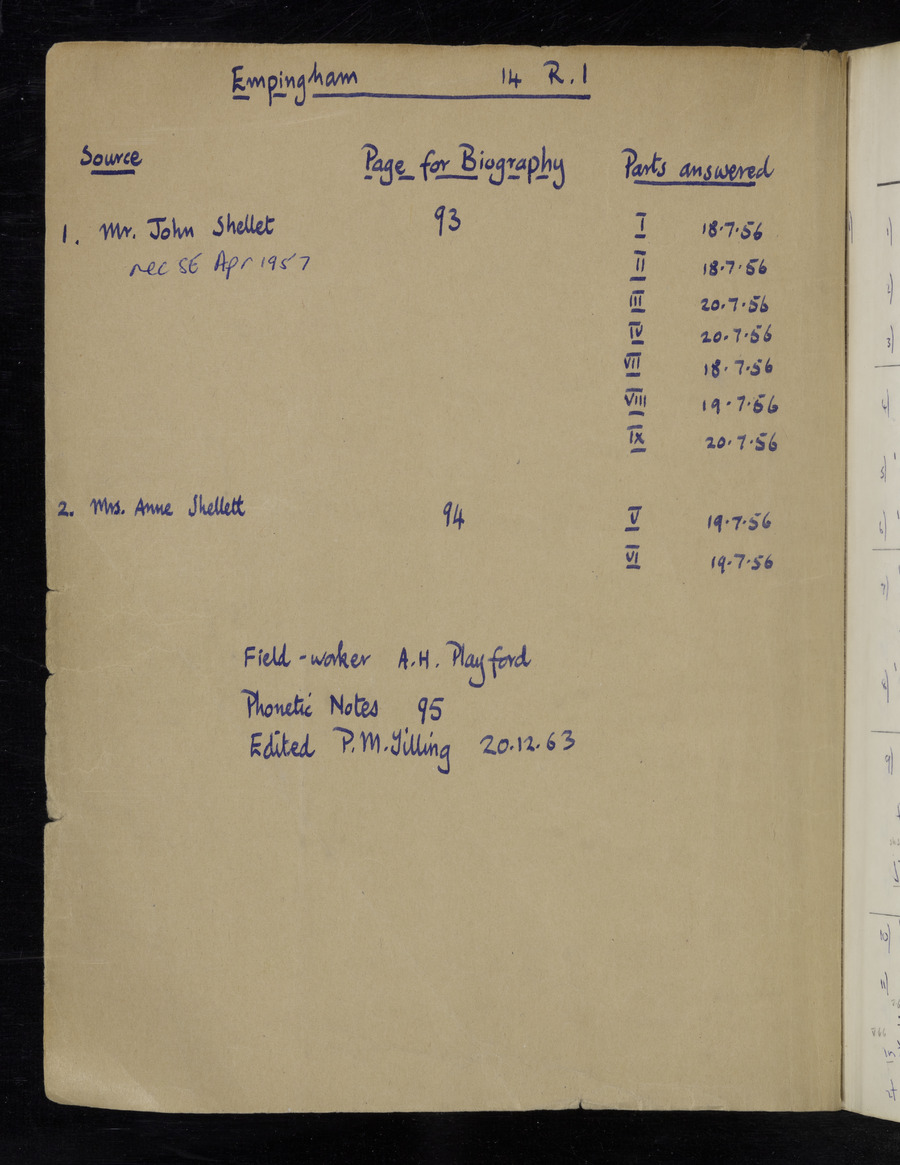 Empingham 14 R.1
Source Page for Biography Parts answered
1. Mr. John Shellet 93 I 18.7.56
rec SE Apr 1957
II 18.7.56
III 20.7.56
IV 20.7.56
VII 18.7.56
VIII 19.7.56
IX 20.7.56
2. Mrs. Anne Shellett 94 V 19.7.56
VI 19.7.56
Field-worker A.H. Playford
Phonetic Notes 95
Edited P.M. Tilling 20.12.63